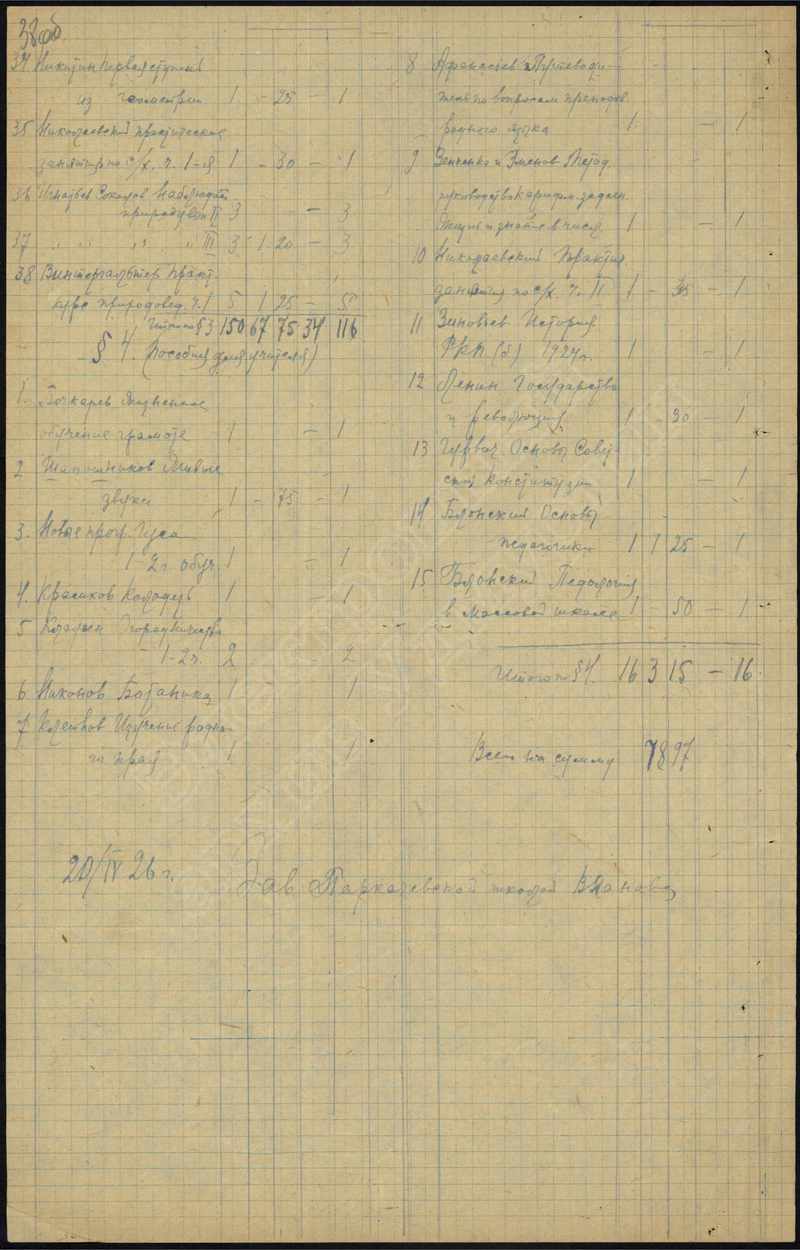 38об
34 Никитин первая ступень
из геометрии 1 - 25 - 1
35 Николаевский практические
занятия по с/х. ч. 1-я 1 - 30 - 1
36 Игнатьев Соколов Наблюдайте
природу ч. II 3 - 3
37 " " " " III 3 1 20 - 3
38 Винтергальтер Практ.
курс природовед. ч. 1 5 1 25 - 5
Итого по § 3 150 67 75 34 116
§ 4. (Пособия для учителя)
1. Бочкарев
обучение грамоте 1 - 1
2 Шапошников Живые
звуки 1 - 75 - 1
3. Новые прогр. Гуса
1-2 г. обуч. 1 - 1
4. Красиков 1 - 1
5
1-2 ч. 2 - 2
6 Никонов Ботаника 1 1
7 Изучение родно-
го края 1 1
8 Афанасьев Путеводи-
тель по вопросам преподав.
родного языка 1 - 1
9 Зенченко и Эменов Метод.
руководство к арифм. задачн.
Жизнь и знание в числ. 1 - 1
10 Николаевский Практич.
занятия по с/х. ч. II 1 - 35 - 1
11 Зиновьев История
РКП (б) 1924 г. 1 - 1
12 Ленин Государство
и революция 1 - 30 - 1
13 Гурвич Основы Совет-
ской конституции 1 - 1
14 Блонский Основы
педагогики 1 1 25 - 1
15 Блонский Педология
в массовой школе 1 - 50 - 1
Итого по § 4. 16 3 15 - 16
Всего на сумму 78 97
20/IV 26 г. Зав Паркачевской школой